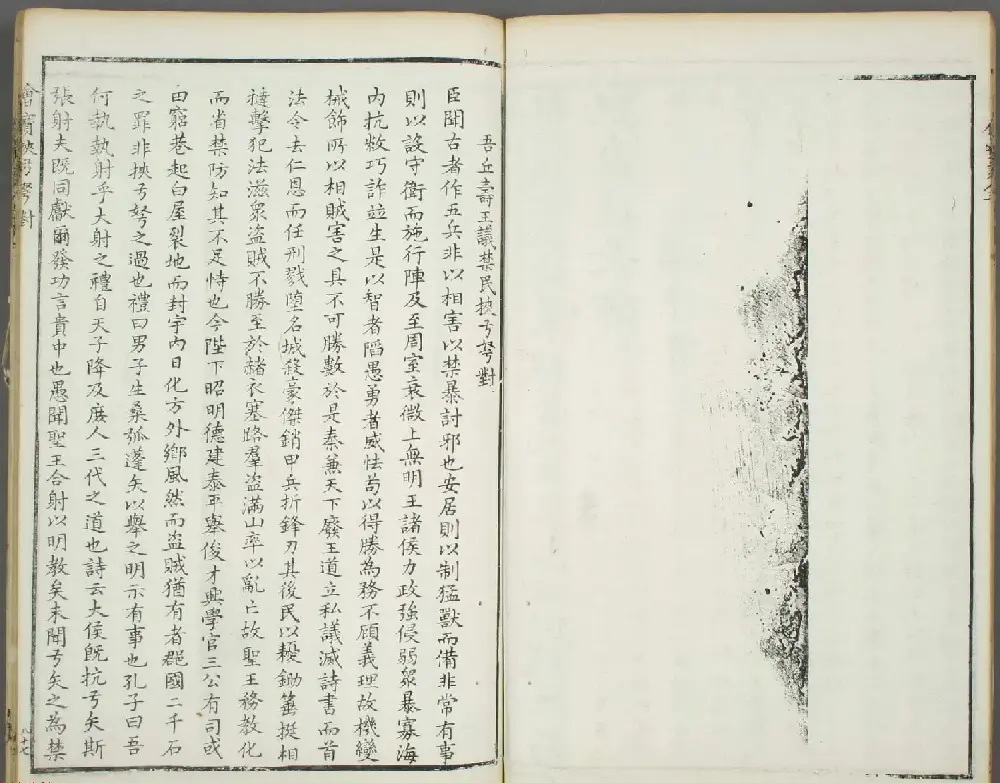 吾丘壽王議禁民挾弓弩對
臣聞古者作五兵非以相害以禁暴討邪也安居則以制猛獸而備非常有事
則以設守衛而施行陣及至周室衰微上無明王諸侯力政強侵弱眾暴寡海
內抗敝巧詐竝生是以智者陷愚勇者威怯苟以得勝為務不顧義理故機變
械飾所以相賊害之具不可勝數於是秦兼天下廢王道立私議滅詩書而首
法令去仁恩而任刑戮墮名城殺豪傑銷甲兵折鋒刃其後民以耰鋤箠挺相
撻擊犯法滋眾盜賊不勝至於赭衣塞路羣盜滿山卒以亂亡故聖王務教化
而省禁防知其不足恃也今陛下昭明德建泰平舉俊才興學官三公有司或
由窮巷起白屋裂地而封宇內日化方外鄉風然而盜賊猶有者郡國二千石
之罪非挾弓弩之過也禮曰男子生桑弧蓬矢以舉之明示有事也孔子曰吾
何執執射乎大射之禮自天子降及庶人三代之道也詩云大侯既抗弓矢斯
張射夫既同獻爾發功言貴中也愚聞聖王合射以明教矣未聞弓矢之為禁